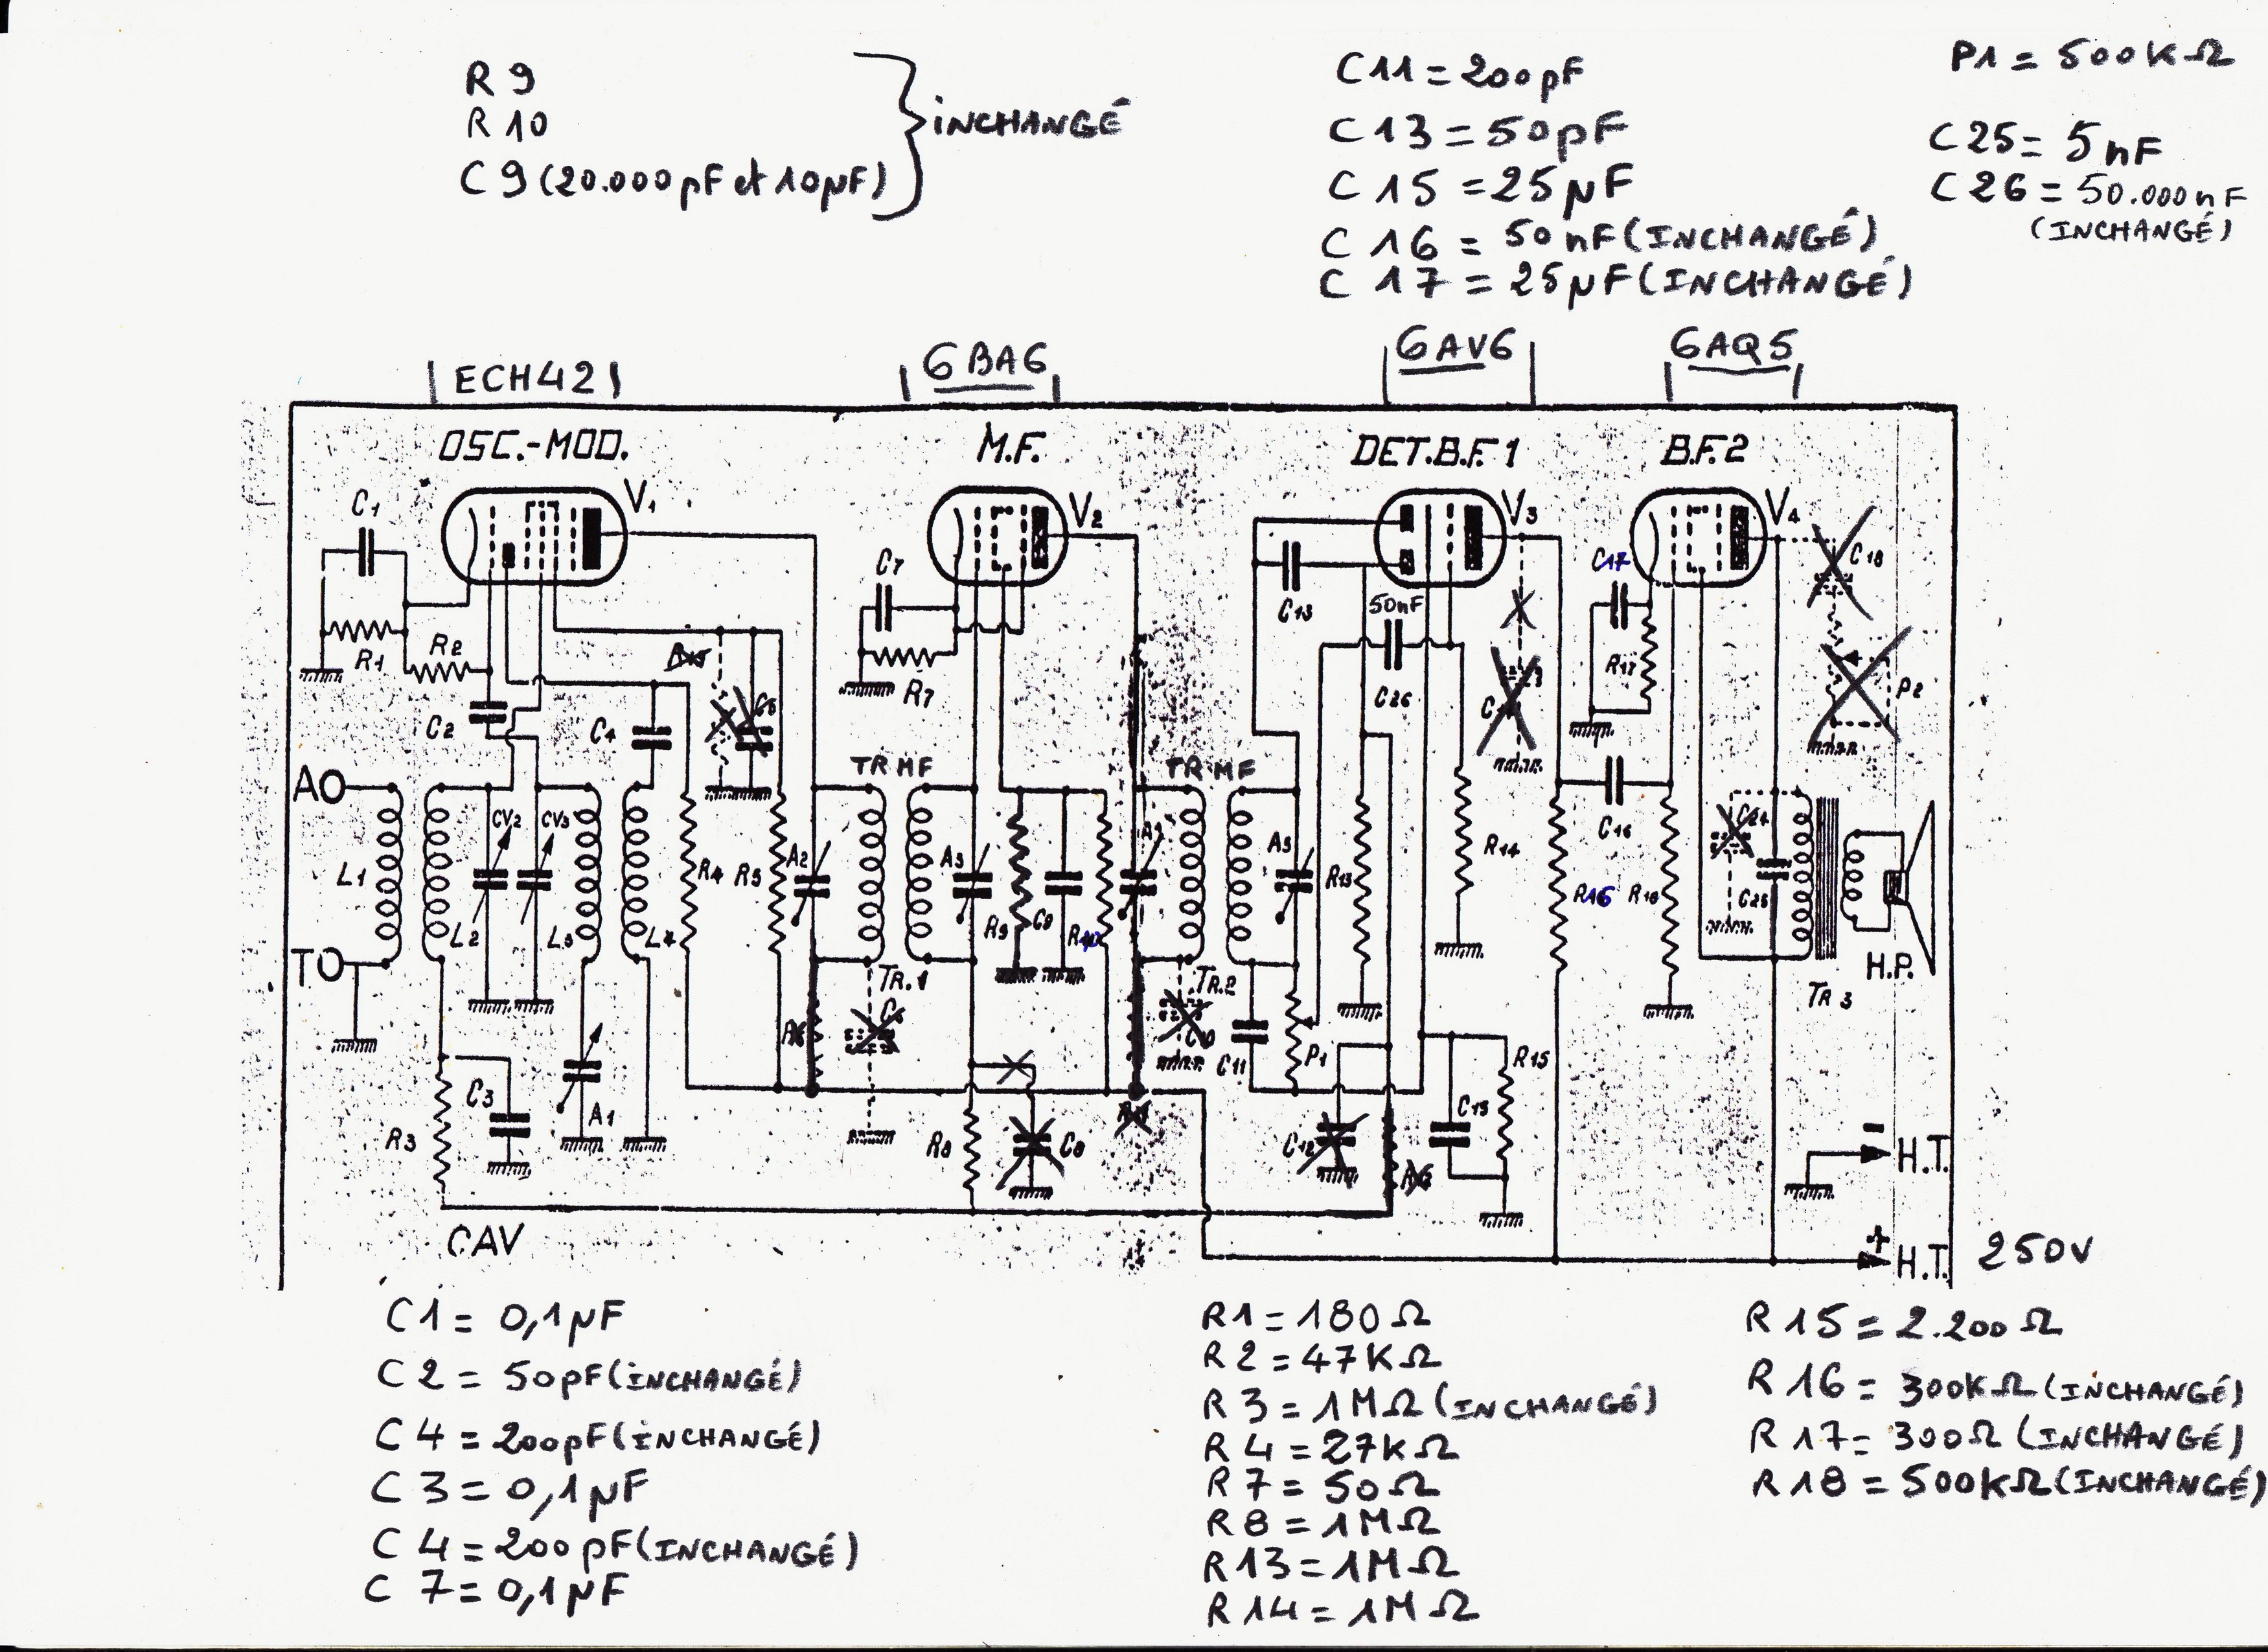 R 9
R 10
C 9 (20.000 pF et 10µF)
INCHANGÉ
C11 = 200pF
C13 = 50pF
C 15 = 25µF
C 16 = 50 nF (INCHANGÉ)
C 17 = 25µF (INCHANGÉ)
P1 = 500KΩ
C25 = 5nF
C 26 = 50.000nF
(INCHANGÉ)
ECH42
6BA6
6AV6
6AQ5
OSC.-MOD.
M.F.
DET.B.F.1
B.F.2
V1
V2
V3
V4
C1
R1
R2
C2
C4
C7
R7
C13
50nF
C26
C17
R17
C18
P2
TR MF
TR MF
AO
TO
L1
L2
CV2
CV3
L3
L4
R4
R5
A2
A3
R9
C9
R10
A5
R13
R14
C16
R16
R18
C24
C25
H.P.
TR.1
TR.2
TR 3
C11
P1
R15
C15
C3
R3
A1
R8
C8
C12
CAV
- H.T.
+ H.T.
250V
C1 = 0,1µF
C 2 = 50pF (INCHANGÉ)
C 4 = 200pF (INCHANGÉ)
C 3 = 0,1µF
C 4 = 200 pF (INCHANGÉ)
C 7 = 0,1µF
R1 = 180 Ω
R 2 = 47KΩ
R 3 = 1MΩ (INCHANGÉ)
R 4 = 27KΩ
R 7 = 50Ω
R 8 = 1MΩ
R13 = 1MΩ
R14 = 1MΩ
R 15 = 2.200 Ω
R 16 = 300KΩ (INCHANGÉ)
R 17 = 300Ω (INCHANGÉ)
R 18 = 500KΩ (INCHANGÉ)